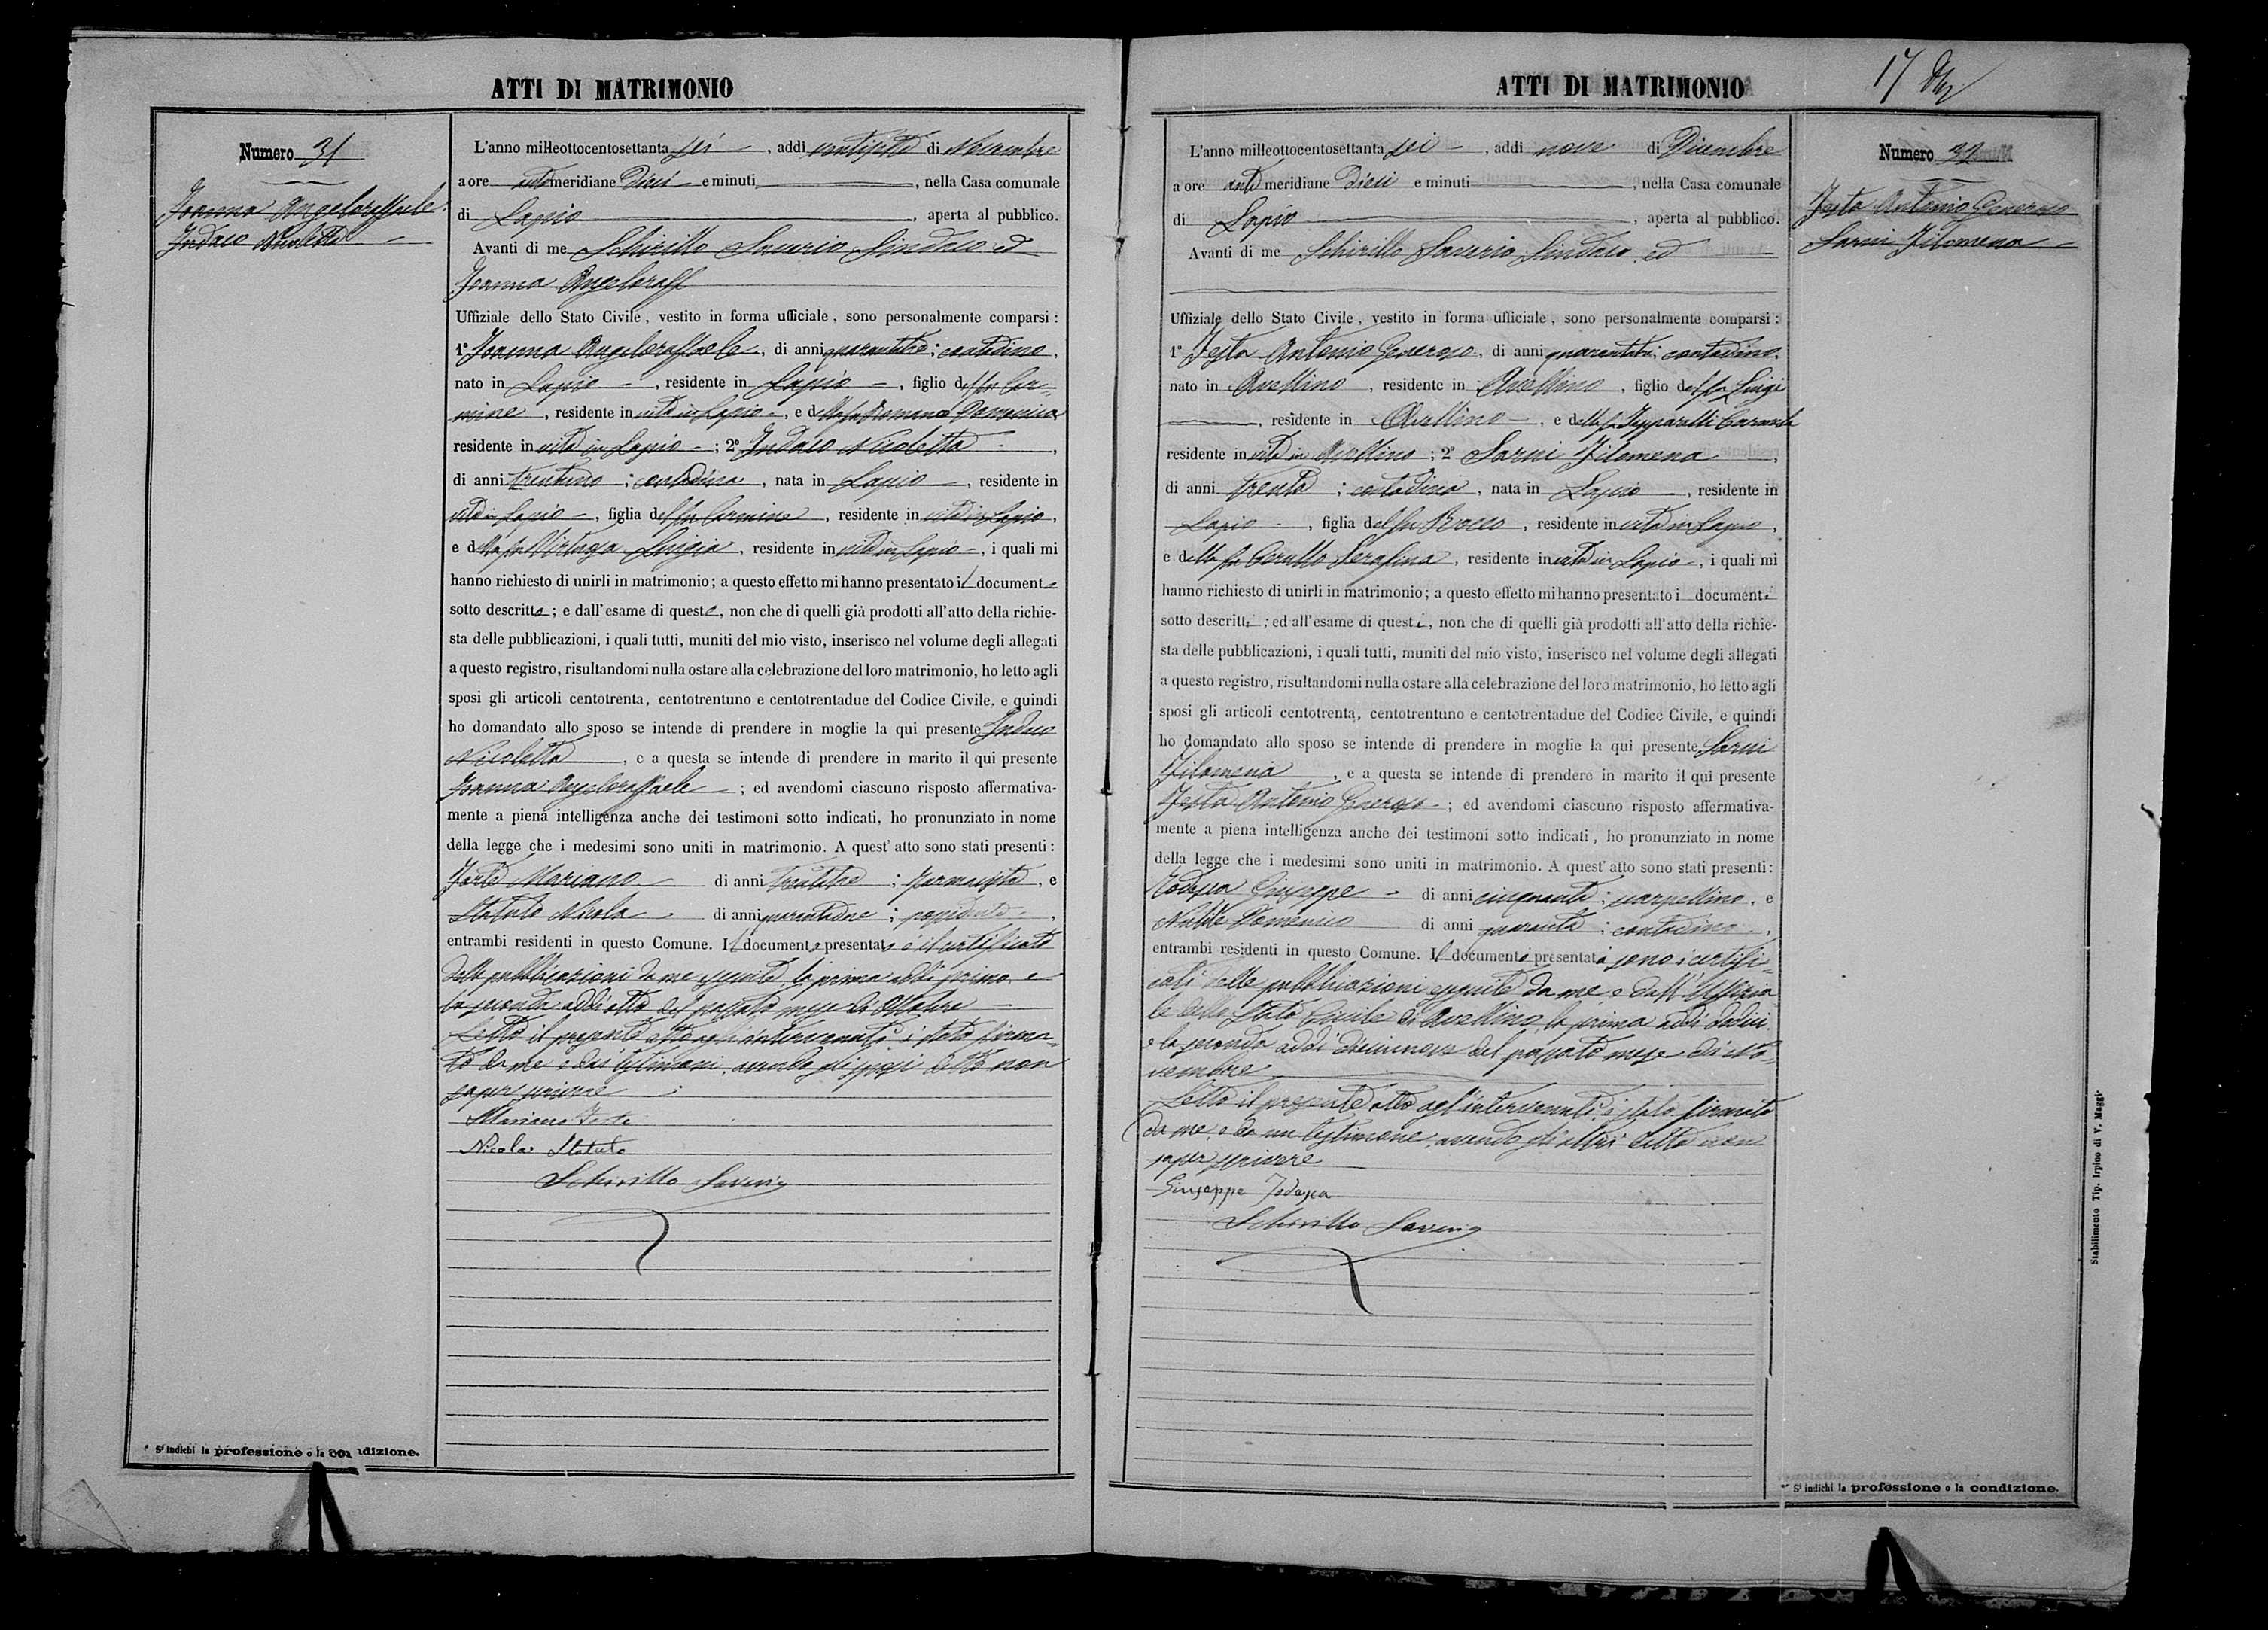 ATTI DI MATRIMONIO
Numero 31
Angeloraffaele
Indaco Nicoletta
L'anno milleottocentosettanta sei, addi ventisette di Novembre
a ore antimeridiane Dieci e minuti, nella Casa comunale
di Lapio, aperta al pubblico.
Avanti di me Schirillo Saverio Sindaco ed
Angeloraff
Uffiziale dello Stato Civile, vestito in forma ufficiale, sono personalmente comparsi:
1º Angeloraffaele, di anni quarantatre; contadino,
nato in Lapio, residente in Lapio, figlio del fu Car-
mine, residente in vita in Lapio, e della fu Romano Domenica
residente in vita in Lapio; 2º Indaco Nicoletta,
di anni trentuno; contadina, nata in Lapio, residente in
vita in Lapio, figlia del fu Carmine, residente in vita in Lapio,
e della fu Luigia, residente in vita in Lapio, i quali mi
hanno richiesto di unirli in matrimonio; a questo effetto mi hanno presentato il documento
sotto descritto; e dall'esame di questo, non che di quelli già prodotti all'atto della richie-
sta delle pubblicazioni, i quali tutti, muniti del mio visto, inserisco nel volume degli allegati
a questo registro, risultandomi nulla ostare alla celebrazione del loro matrimonio, ho letto agli
sposi gli articoli centotrenta, centotrentuno e centotrentadue del Codice Civile, e quindi
ho domandato allo sposo se intende di prendere in moglie la qui presente Indaco
Nicoletta, e a questa se intende di prendere in marito il qui presente
Angeloraffaele; ed avendomi ciascuno risposto affermativa-
mente a piena intelligenza anche dei testimoni sotto indicati, ho pronunziato in nome
della legge che i medesimi sono uniti in matrimonio. A quest'atto sono stati presenti:
Forte Mariano di anni trentatre; farmacista, e
Statuto Nicola di anni quarantadue; possidente,
entrambi residenti in questo Comune. Il documento presentato è il certificato
delle pubblicazioni da me eseguite, la prima addì primo e
la seconda addì otto del passato mese di Ottobre
Letto il presente atto agli intervenuti, è stato firma-
to da me e dai testimoni, avendo gli sposi detto non
saper scrivere
Mariano Forte
Nicola Statuto
Schirillo Saverio
* Si indichi la professione o la condizione.
ATTI DI MATRIMONIO
17
Numero 32
Testa Antonio Generoso
Sarni Filomena
L'anno milleottocentosettanta sei, addi nove di Dicembre
a ore antimeridiane Dieci e minuti, nella Casa comunale
di Lapio, aperta al pubblico.
Avanti di me Schirillo Saverio, Sindaco ed
Uffiziale dello Stato Civile, vestito in forma ufficiale, sono personalmente comparsi:
1º Testa Antonio Generoso, di anni quarantatre; contadino,
nato in Avellino, residente in Avellino, figlio del fu Luigi
, residente in Avellino, e della fu
residente in vita in Avellino; 2º Sarni Filomena,
di anni trenta; contadina, nata in Lapio, residente in
Lapio, figlia del fu Rocco, residente in vita in Lapio,
e della fu Cerullo Serafina, residente in vita in Lapio, i quali mi
hanno richiesto di unirli in matrimonio; a questo effetto mi hanno presentato i documenti
sotto descritti; ed all'esame di questi, non che di quelli già prodotti all'atto della richie-
sta delle pubblicazioni, i quali tutti, muniti del mio visto, inserisco nel volume degli allegati
a questo registro, risultandomi nulla ostare alla celebrazione del loro matrimonio, ho letto agli
sposi gli articoli centotrenta, centotrentuno e centotrentadue del Codice Civile, e quindi
ho domandato allo sposo se intende di prendere in moglie la qui presente Sarni
Filomena, e a questa se intende di prendere in marito il qui presente
Testa Antonio Generoso; ed avendomi ciascuno risposto affermativa-
mente a piena intelligenza anche dei testimoni sotto indicati, ho pronunziato in nome
della legge che i medesimi sono uniti in matrimonio. A quest'atto sono stati presenti:
Todesca Giuseppe di anni cinquanta; scarpellino, e
Domenico di anni quaranta; contadino,
entrambi residenti in questo Comune. I documenti presentati sono i certifi-
cati delle pubblicazioni eseguite da me e dall'Uffizia-
le dello Stato Civile di Avellino, la prima addì dodici
e la seconda addì diecinnove del passato mese di No-
vembre
Letto il presente atto agl'intervenuti, è stato firmato
da me e da un testimone, avendo gli altri detto non
saper scrivere
Giuseppe Todesca
Schirillo Saverio
* Si indichi la professione o la condizione.
Stabilimento Tip. Irpino di V. Maggi